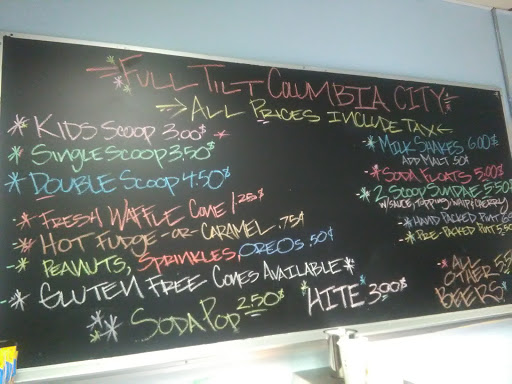 Full Tilt Columbia City
All Prices Include Tax
Kids Scoop 3.00$
Single Scoop 3.50$
Double Scoop 4.50$
Fresh Waffle Cone 1.25$
Hot Fudge -or- Caramel .75¢
Peanuts, Sprinkles, Oreos .50¢
Gluten Free Cones Available
Soda Pop 2.50$
Hite 3.00$
Milk Shakes 6.00$
Add Malt .50¢
Soda Floats 5.00$
2 Scoop Sundae 5.50
w/ Sauce, Topping, Whip & Cherry
Hand Packed Pint
Pre-Packed Pint 5.50
All Other Beers